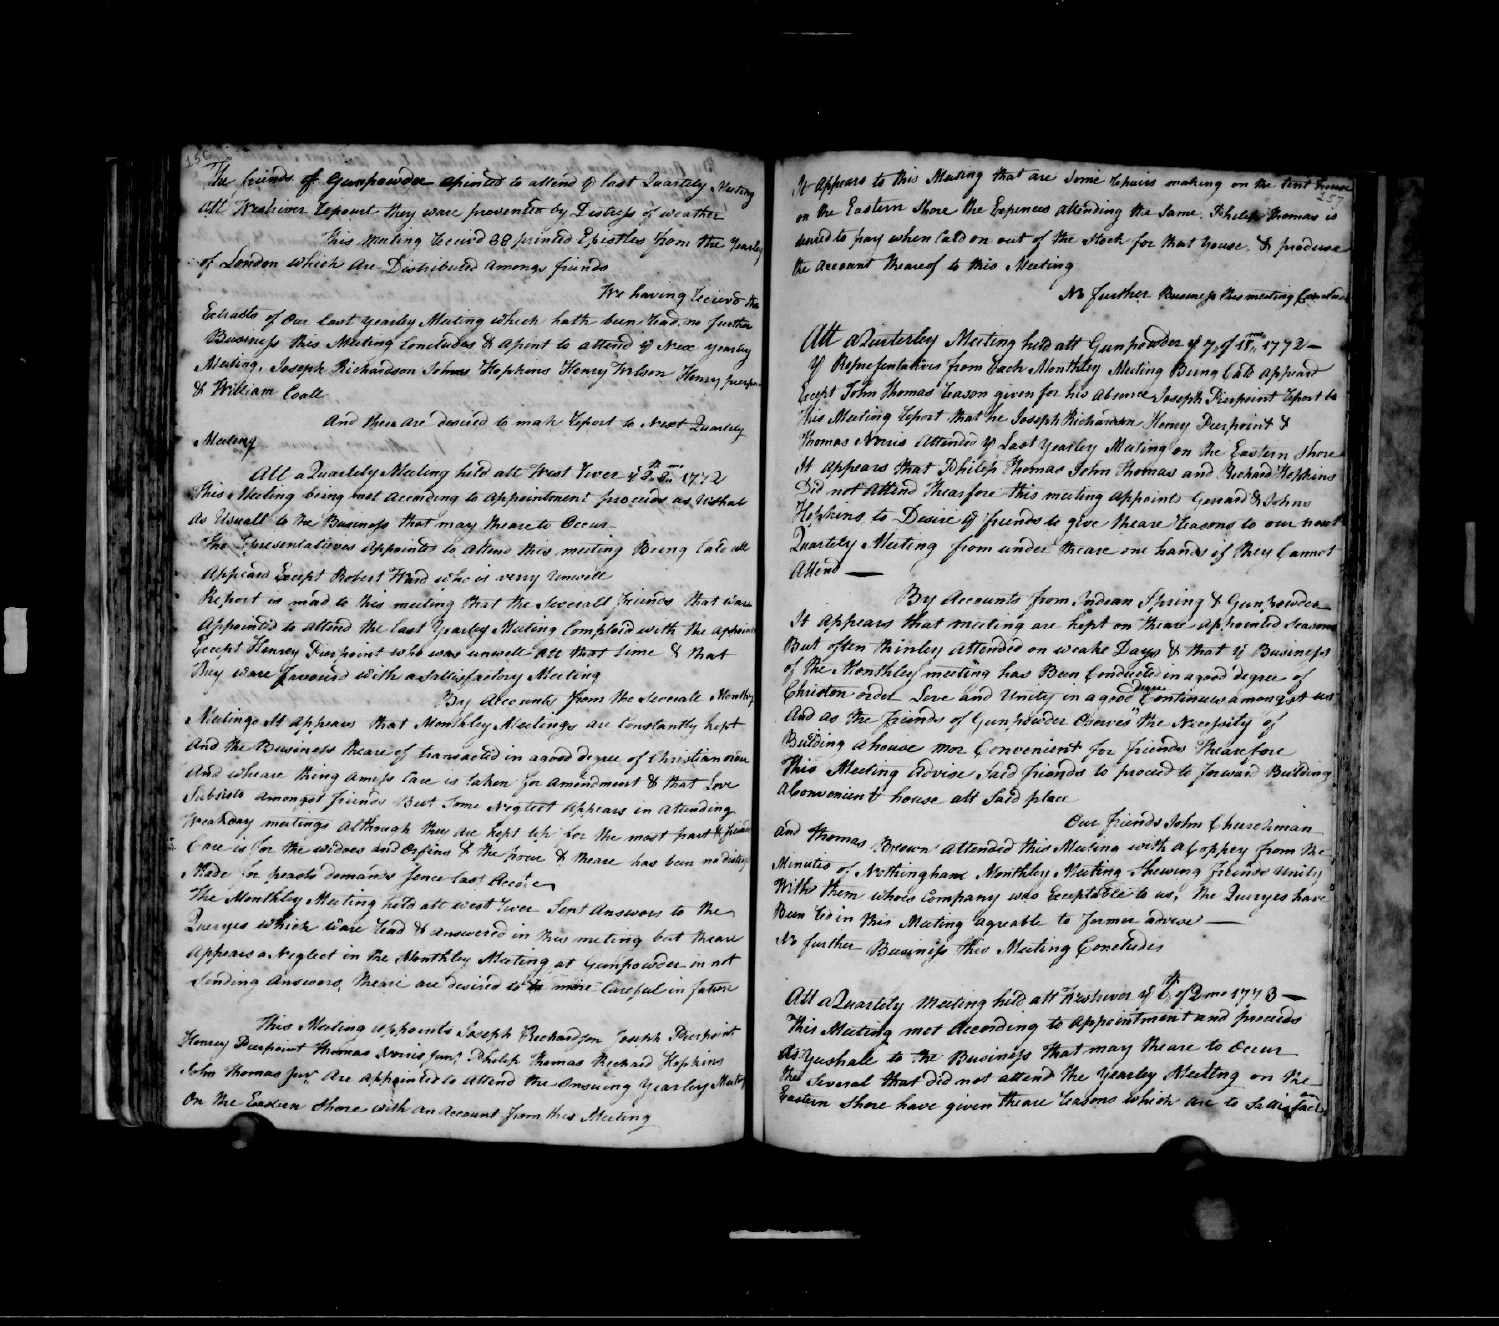 156
The friends of Gunpowder apinted to attend ye last Quartely Meeting
att Westriver Repoart they ware prevented by Distress of weather
This Meeting Receivd 38 printed Epistles from the Yearley
of London which are Distributed amongs friends
We having Receivd the
Extracts of our last yearley Meeting which hath been Read. no further
Business this Meeting Concludes & apint to attend ye Nex yearley
Meeting, Joseph Richardson Johns Hopkins Henry Wilson Henry
& William Coall
And these are desired to mak Report to Next Quartely
Meeting
Att a Quartely Meeting held att West River ye 2mo 1772
This Meeting being met according to appointment proceeds as Ushal
as Usuall to the Business that may theare to Occur
The Representatives appointed to attend this meeting Being Cald all
appeard Except Robert Ward who is verry unwell
Report is mad to this meeting that the Severall friends that ware
Appointed to attend the last Yearley Meeting Complaid with the
Except Henrey Pierpoint who was unwell att that time & that
they ware favoured with a Sattisfactory Meeting
By Accounts from the Severale Monthly
Meetings It appears that Monthley Meetings are Constantly kept
And the Business theare of transacted in a good degree of Christian order
And wheare thing amiss Care is taken for amendment & that Love
Subsists amongst friends But Some Neglect appears in attending
Weakday meetings although they are kept up for the most part &
Care is for the widoes and orfins & the poor & theare has been no
Made for preasts demands sence last
The Monthley Meeting held att west River Sent Answors to the
Querryes which ware Read & answered in this meeting but theare
appears a Neglect in the Monthley Meeting at Gunpowder in not
Sending answors, theare are desired to be more Careful in future
This Meeting appoints Joseph Richardson Joseph Pierpoint
Henrey Pierpoint Thomas Norris junr Philip Thomas Richard Hopkins
John Thomas Junr are appointed to attend the Ansuing Yearley Meeting
On the Eastern Shore with an account from this Meeting
157
It appears to this Meeting that are Some repairs making on the tent house
on the Eastern Shore the Expences attending the Same. Philip Thomas is
desired to pay when Cald on out of the Stock for that house & produce
the account theareof to this Meeting
No further Business this meeting Concludes
Att a Quarterley Meeting held att Gunpowder ye 7 of 11mo 1772
ye Representatives from Each Monthley Meeting Being Cald appeard
Except John Thomas Reason given for his absence Joseph Pierpoint Report to
this Meeting Report that he Joseph Richardson Henry Pierpoint &
Thomas Norris attended ye Last Yearley Meeting on the Eastern Shore
It appears that Philip Thomas John Thomas and Richard Hopkins
Did not attend Thearefore this meeting appoint Gerrard & Johns
Hopkins to Desire ye friends to give theare Reasons to our next
Quartely Meeting from under theare one hands if they Cannot
Attend
By Accounts from Indean Spring & Gunpowder
It appears that meeting are kept on theare appointed Seasons
But often thinley attended on weake Days & that ye Business
of the Monthley meeting has Been Conducted in a good degree of
Christon order Love and Unity in a good Degree Continues amongst us
And as the friends of Gunpowder Observes the Necessity of
Building a house mor Convenient for friends Thearefore
This Meeting advise Said friends to proceed to forward Building
a Convenient house att Said place
Our friends John Churchman
and Thomas Brown attended this Meeting with a Coppey from the
Minutes of Nottingham Monthley Meeting Shewing friends Unity
With them whoes Company was Exceptable to us, The Querryes have
Been Red in this Meeting agreable to former advise
No further Business this Meeting Concludes
Att a Quartely Meeting held att Westriver ye 6th of 2mo 1773
This Meeting met According to appointment and proceeds
As Yushall to the Business that may theare to Occur
the Several that did not attend the Yearley Meeting on the
Eastern Shore have given theare Reasons which are to